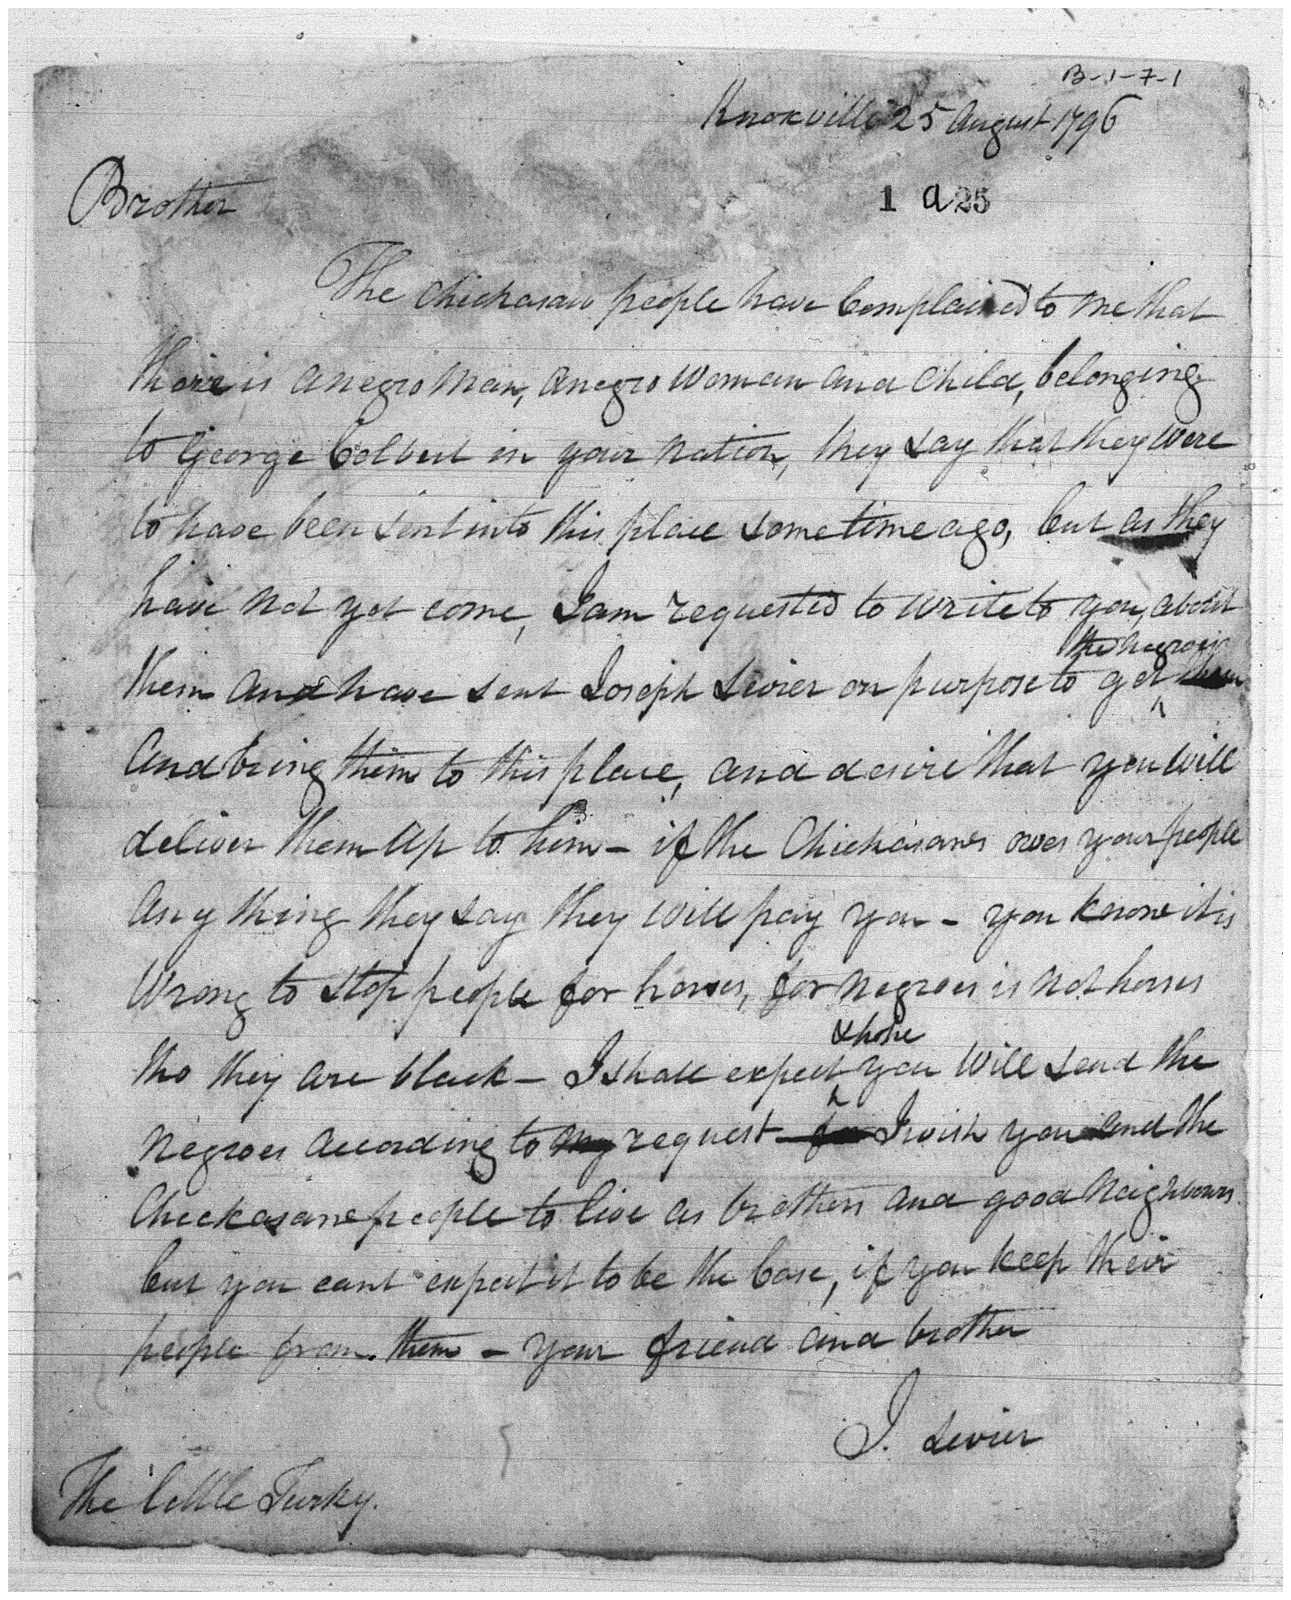 B-1-7-1
Knoxville 25 August 1796
1 a 25
Brother
The Chickasaw people have Complained to me that
there is a negro man, a negro woman and child, belonging
to George Colbert in your nation, they say that they were
to have been sent into this place some time ago, but as they
have not yet come, I am requested to write to you, about
the negroes
them and have sent Joseph Sevier on purpose to get them
and bring them to this place, and desire that you will
deliver them up to him - if the Chickasaws owes your people
any thing they say they will pay you - you know it is
wrong to stop people for horses, for negroes is not horses
tho they are black - I shall expect you will send the
negroes according to my request - for I wish you and the
Chickasaw people to live as brothers and good neighbours
but you cant expect it to be the Case, if you keep their
people from them - your friend and brother
J. Sevier
The Little Turky.